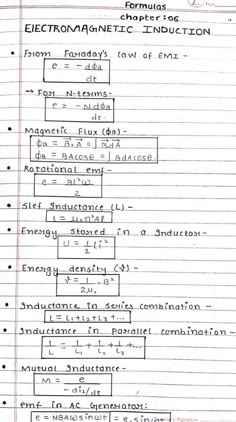 Formulas
chapter:06
ElECTROMAGNETIC INDUCTION
• From Faraday's law of EMI -
e = -dϕB
dt
→ For N-terms-
e = -NdϕB
dt
• Magnetic Flux (ϕB) -
ϕB = B.A = ∫B.dA
ϕB = BAcosθ = ∫BdAcosθ
• Rotational emf-
e = Bl²ω
2
• Slef Inductance (L) -
L = μ₀n²Al
• Energy stored in a Inductor-
U = 1/2 Li²
• Energy density (V) -
V = 1/2μ₀ . B²
• Inductance in series combination -
L = L₁+L₂+L₃+...
• Inductance in parallel combination -
1/L = 1/L₁ + 1/L₂ + 1/L₃ ...
• Mutual Inductance-
M = e
-di₂/dt
• emf in AC Generator:
e = NBAωsinωt = e₀sinωt